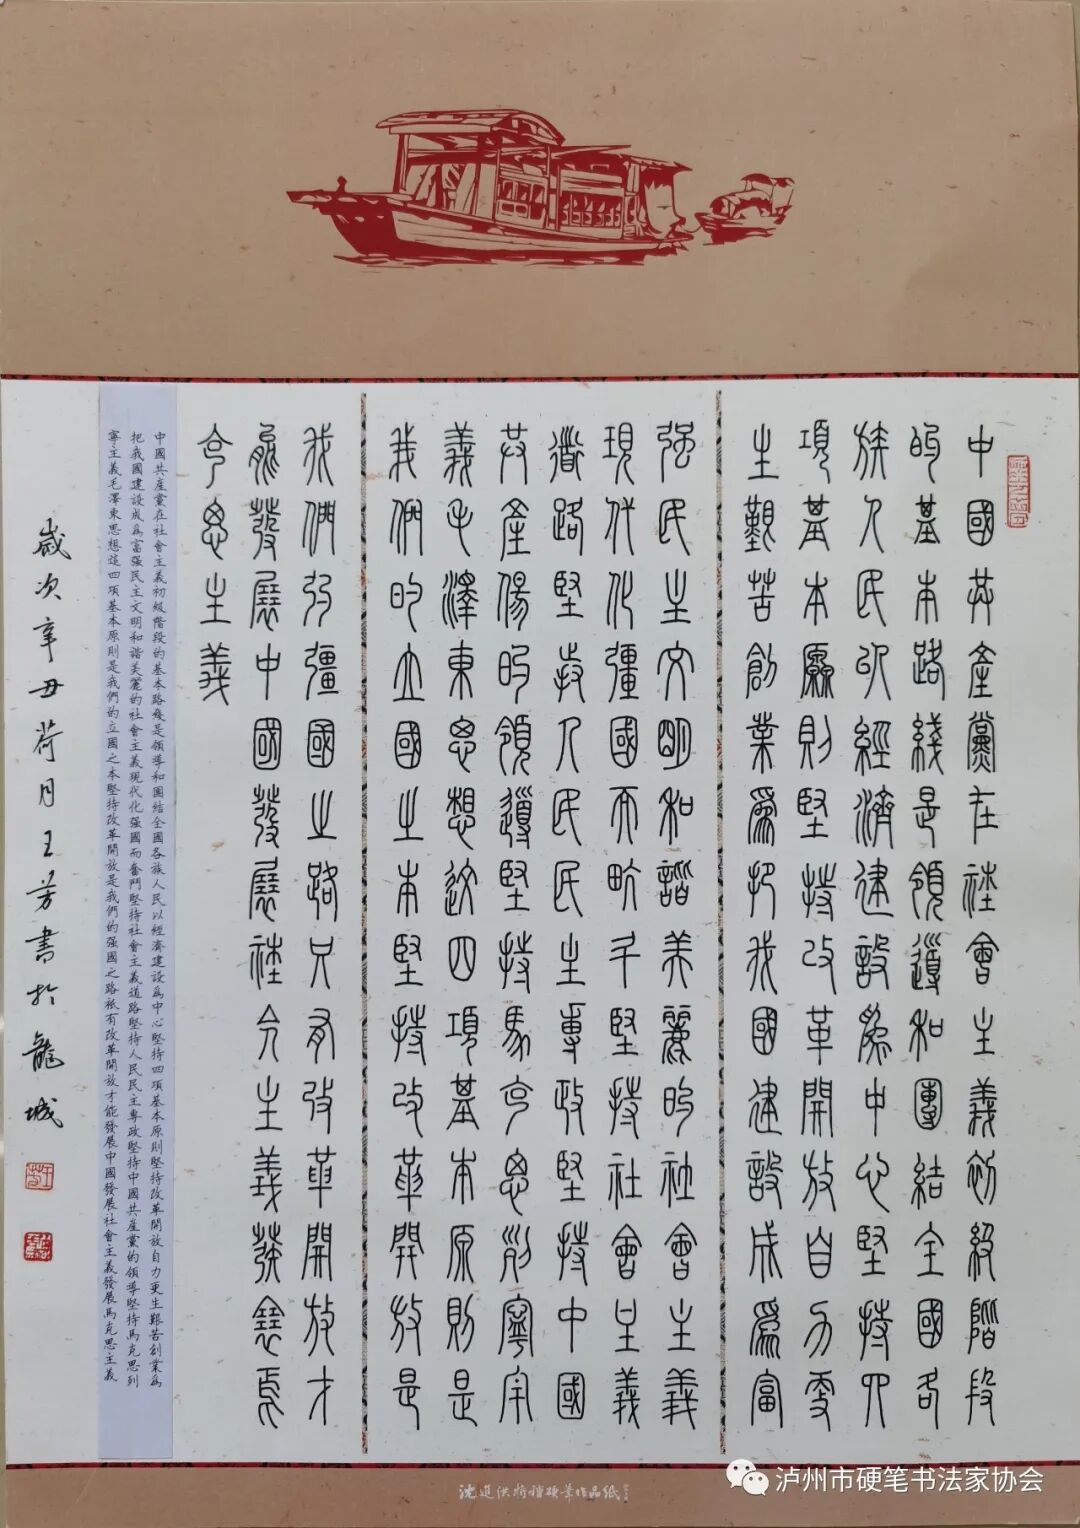 中國共產黨在社會主義初級階段
的基本路綫是領導和團結全國各
族人民以經濟建設爲中心堅持四
項基本原則堅持改革開放自力更
生艱苦創業爲把我國建設成爲富
强民主文明和諧美麗的社會主義
現代化彊國而奮鬥堅持社會主義
道路堅持人民民主專政堅持中國
共產黨的領導堅持馬克思列寧主
義毛澤東思想這四項基本原則是
我們的立國之本堅持改革開放是
我們的彊國之路只有改革開放才
能發展中國發展社會主義發展馬
克思主義
中國共産黨在社會主義初級階段的基本路綫是領導和團結全國各族人民以經濟建設爲中心堅持四項基本原則堅持改革開放自力更生艱苦創業爲
把我國建設成爲富强民主文明和諧美麗的社會主義現代化强國而奮鬥堅持社會主義道路堅持人民民主專政堅持中國共産黨的領導堅持馬克思列
寧主義毛澤東思想這四項基本原則是我們的立國之本堅持改革開放是我們的强國之路衹有改革開放才能發展中國發展社會主義發展馬克思主義
歲次辛丑荷月王芳書於龍城
泸州市硬笔书法家协会